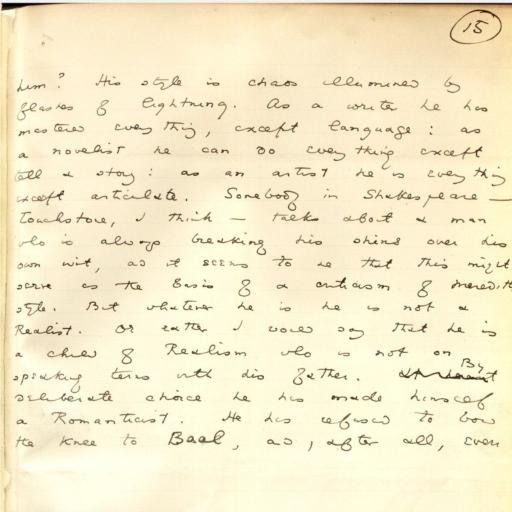 15
him? His style is chaos illumined by
flashes of lightning. As a writer he has
mastered everything, except language: as
a novelist he can do everything except
tell a story: as an artist he is everything
except articulate. Somebody in Shakespeare —
Touchstone, I think — talks about a man
who is always breaking his shins over his
own wit, as it seems to me that this might
serve as the basis of a criticism of Meredith
style. But whatever he is he is not a
Realist. Or rather I would say that he is
a child of Realism who is not on
speaking terms with his father. By
deliberate choice he has made himself
a Romanticist. He has refused to bow
the knee to Baal, as, after all, even